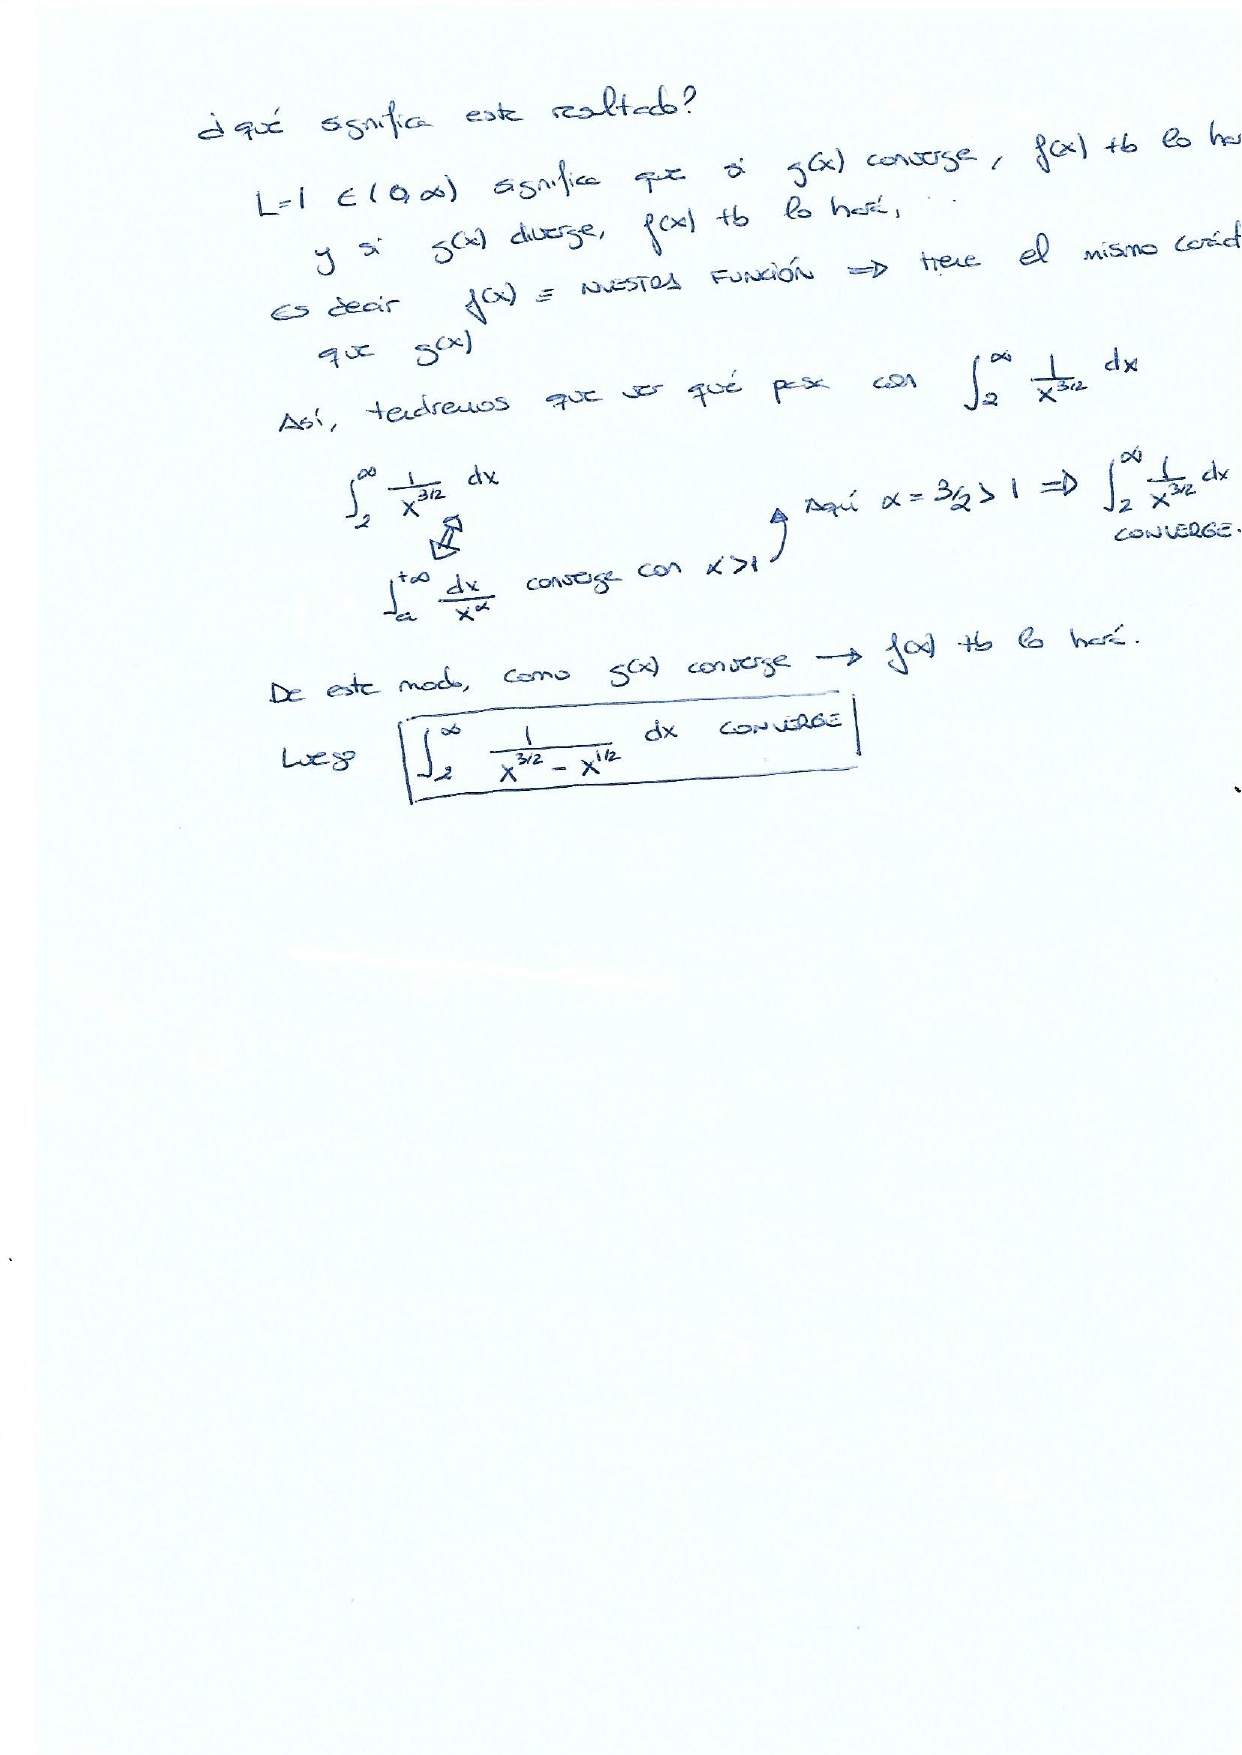 ¿qué significa este resultado?
L=1 ∈ (0,∞) significa que si g(x) converge, f(x) tb lo har
y si g(x) diverge, f(x) tb lo hará,
Es decir f(x) ≡ NUESTRA FUNCIÓN ⇒ tiene el mismo caráct
que g(x)
Así, tendremos que ver qué pasa con ∫₂^∞ 1/x^{3/2} dx
∫₂^∞ 1/x^{3/2} dx
Aquí α = 3/2 > 1 ⇒ ∫₂^∞ 1/x^{3/2} dx
CONVERGE.
∫ₐ^{+∞} dx/x^α converge con α>1
De este modo, como g(x) converge → f(x) tb lo hará.
Luego ∫₂^∞ 1/(x^{3/2} - x^{1/2}) dx CONVERGE